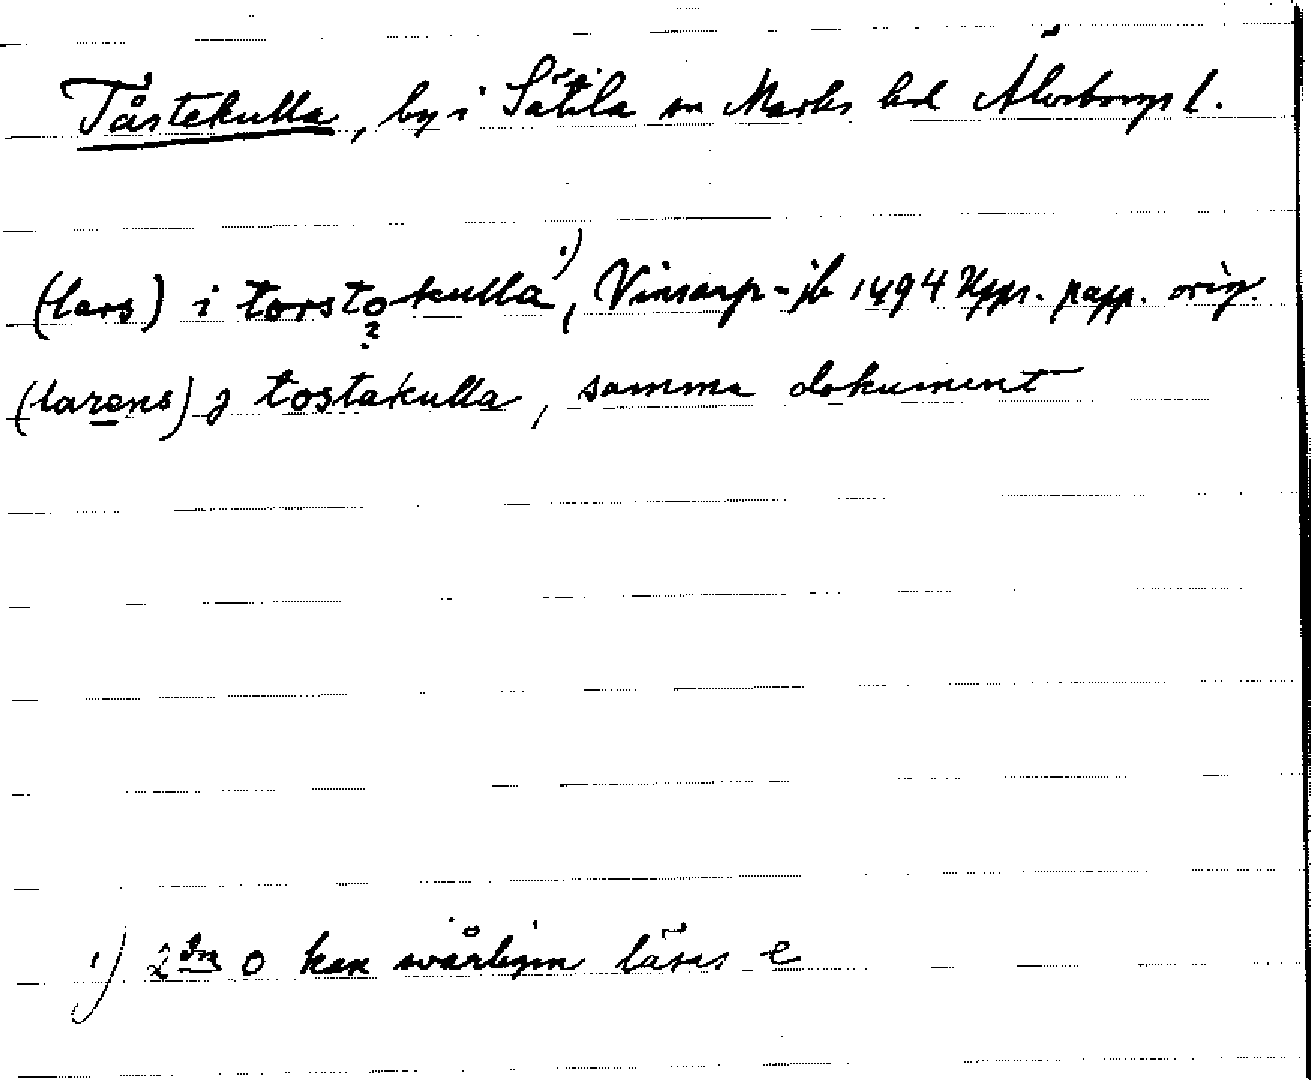 Tåstekulla, by i Sätila sn Marks hd Älvsborgs l.
(lars) i torstokulla 1), Vinsarp-jb 1494 Upps. papp. orig.
?
(larens) j tostakulla, samma dokument
1) 2dra o kan svårligen läsas e